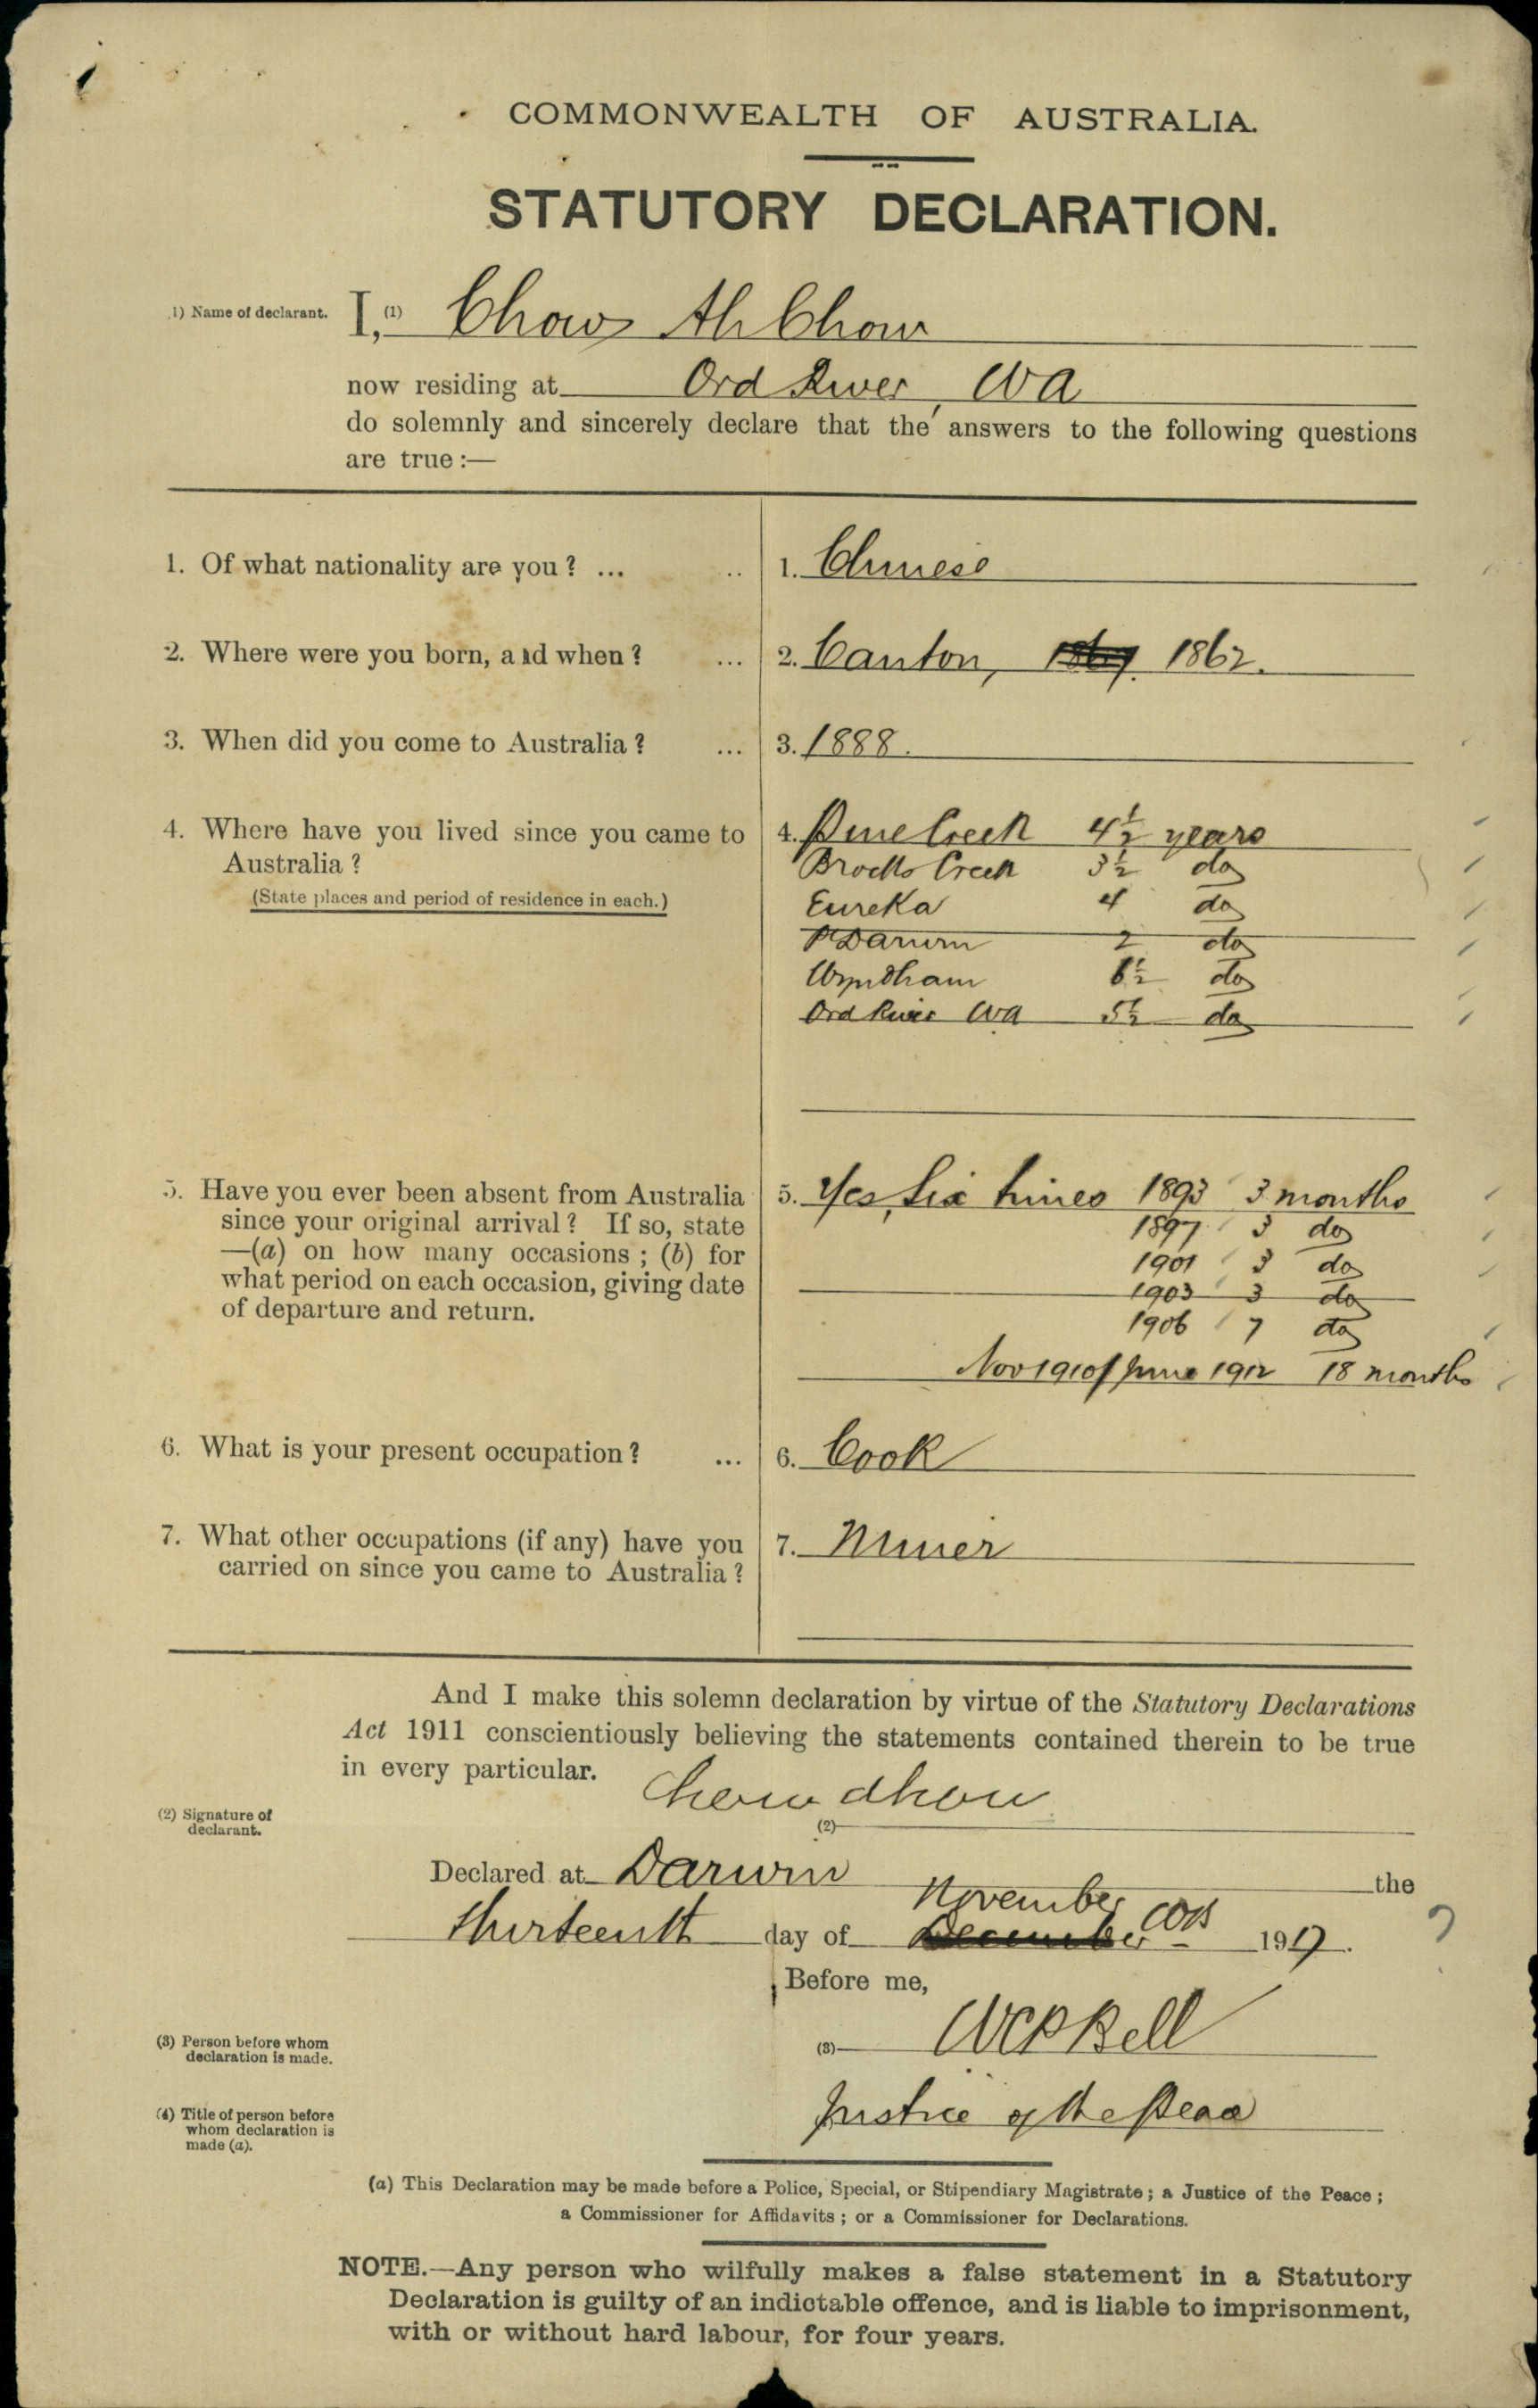 COMMONWEALTH OF AUSTRALIA.
STATUTORY DECLARATION.
(1) Name of declarant. I, (1) Chow Ah Chow
now residing at Ord River, WA
do solemnly and sincerely declare that the answers to the following questions
are true :—
1. Of what nationality are you ? ... .. 1. Chinese
2. Where were you born, and when ? ... 2. Canton, 1862.
3. When did you come to Australia ? ... 3. 1888.
4. Where have you lived since you came to 4. Pine Creek 4½ years
Australia ? Brocks Creek 3½ do
(State places and period of residence in each.) Eureka 4 do
Pt Darwin 2 do
Wyndham 6½ do
Ord River WA 5½ do
5. Have you ever been absent from Australia 5. Yes, Six times 1893 3 months
since your original arrival ? If so, state 1897 3 do
—(a) on how many occasions ; (b) for 1901 3 do
what period on each occasion, giving date 1903 3 do
of departure and return. 1906 7 do
Nov 1910/June 1912 18 months
6. What is your present occupation ? ... 6. Cook
7. What other occupations (if any) have you 7. Miner
carried on since you came to Australia ?
And I make this solemn declaration by virtue of the Statutory Declarations
Act 1911 conscientiously believing the statements contained therein to be true
in every particular.
(2) Signature of
declarant. (2) Chow
Declared at Darwin the
November
Thirteenth day of December 1917.
?
Before me,
(3) Person before whom
declaration is made. (3) WCPBell
Justice of the Peace
(4) Title of person before
whom declaration is
made (a).
(a) This Declaration may be made before a Police, Special, or Stipendiary Magistrate ; a Justice of the Peace ;
a Commissioner for Affidavits ; or a Commissioner for Declarations.
NOTE.—Any person who wilfully makes a false statement in a Statutory
Declaration is guilty of an indictable offence, and is liable to imprisonment,
with or without hard labour, for four years.